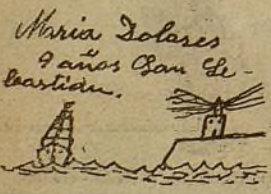 Maria Dolores
9 años San Se-
bastián.